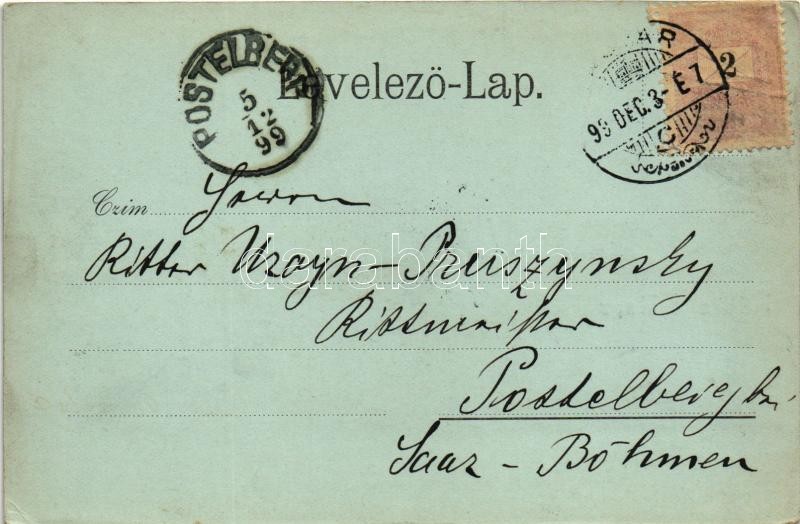 POSTELBERG
5
12
99
Levelező-Lap.
2
99 DEC. 3-É 7
C
Czim Herrn
Ritter Uzayn-Pruszynsky
Rittmeister
Postelberg bei
Saaz - Böhmen
darabanth.com